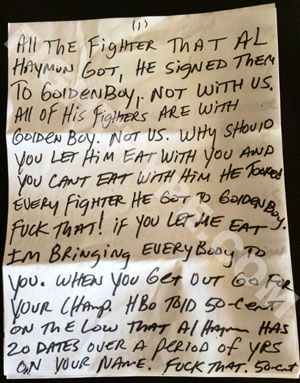 (1)
All The Fighter That AL
HAYMUN GOT, HE SIGNED THEM
TO GOLDENBOY, NOT WITH US.
All OF His FIGHTERS ARE WITH
GOLDEN BOY. NOT US. WHY SHOULD
YOU LET HIM EAT WITH YOU AND
YOU CANT EAT WITH HIM HE TOOKED
EVERY FIGHTER HE GOT TO GOLDENBOY.
FUCK THAT! IF YOU LET ME EAT
IM BRINGING EVERYBODY TO
YOU. WHEN YOU GET OUT GO FOR
YOUR CHAMP. HBO TOlD 50-CENT
ON THE LOW THAT Al Haymun HAS
20 DATES OVER A PERIOD OF YRS
ON YOUR NAME. FUCK THAT. 50-cent